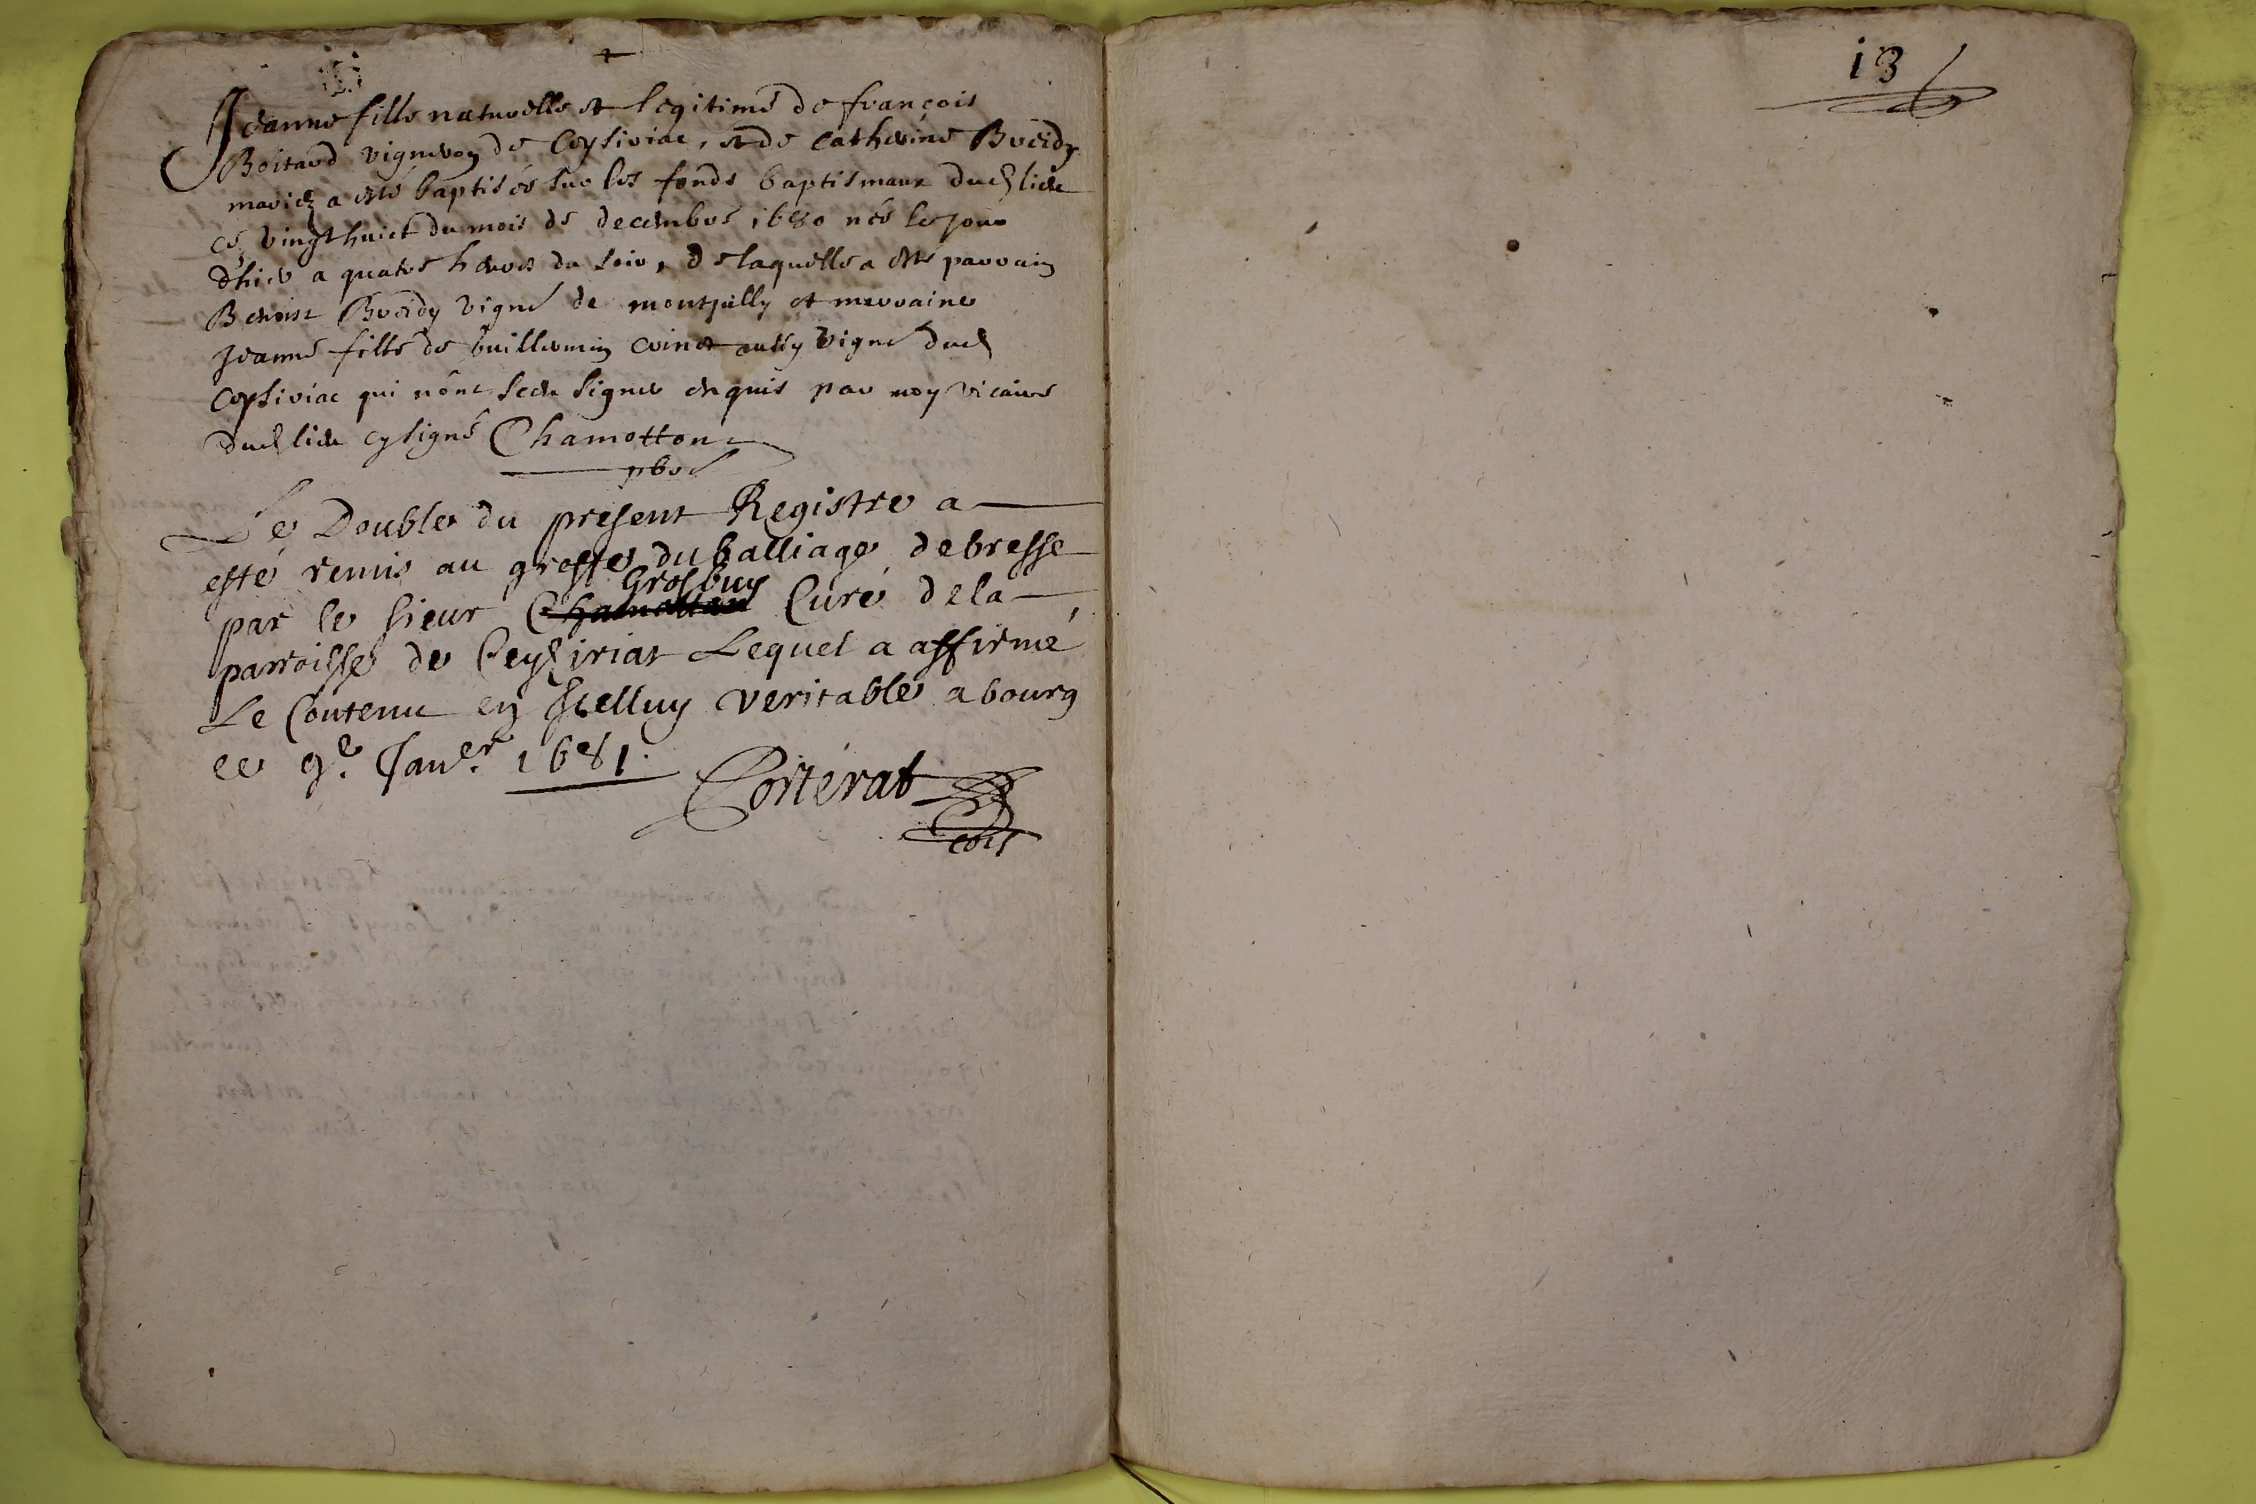 Jeanne fille naturelle et legitime de françois
Boitard vigneron de Ceysiriac, et de Catherine Breidy
mariez a esté baptisée sur les fonds baptismaux dud lieu
ce vingt huict du mois de decembre 1680 née le jour
dhier a quatre heures du soir, de laquelle a esté parrain
Benoist Breidy vigne de montjully et marraine
Jeanne fille de Guillermin aussy vigne dud
Ceysiriac qui n'ont sceu signer enquis par moy vicaire
dud lieu cy signé Chamotton
pbre
Le Double du present Registre a
esté remis au greffe du balliage de bresse
Grosbuy
par le sieur Chamotton Curé dela
parroisse de Ceyziriat Lequel a affirmé
Le Contenu en Icelluy veritable a bourg
ce 9e. Janer. 1681.
Corterat
cois
13